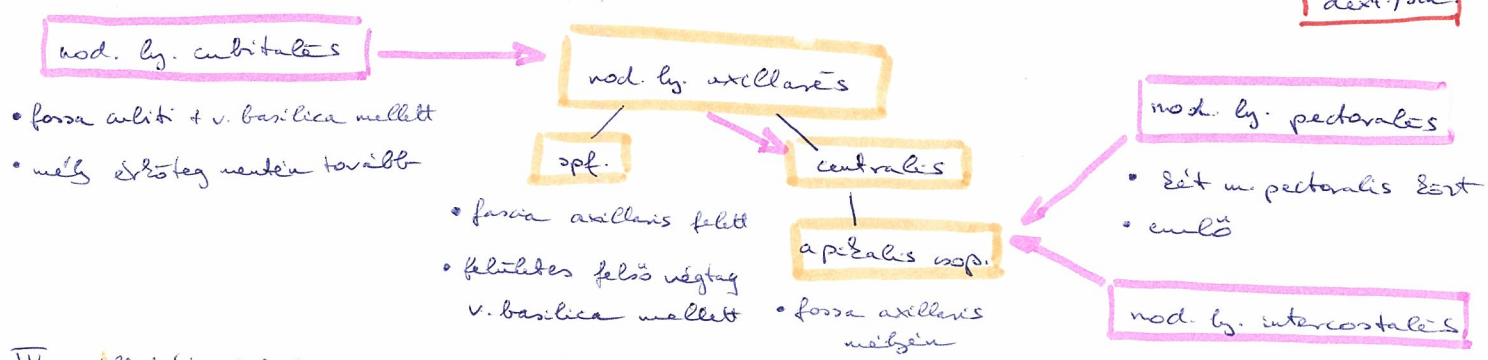 dext./sin.
nod. ly. cubitales
• fossa cubiti + v. basilica mellett
• mély érköteg mentén tovább
nod. ly. axillares
spf.
• fascia axillaris felett
• felületes felső végtag
v. basilica mellett
centralis
apikalis csop.
• fossa axillaris
mélyén
nod. ly. pectorales
• két m. pectoralis közt
• emlő
nod. ly. intercostales